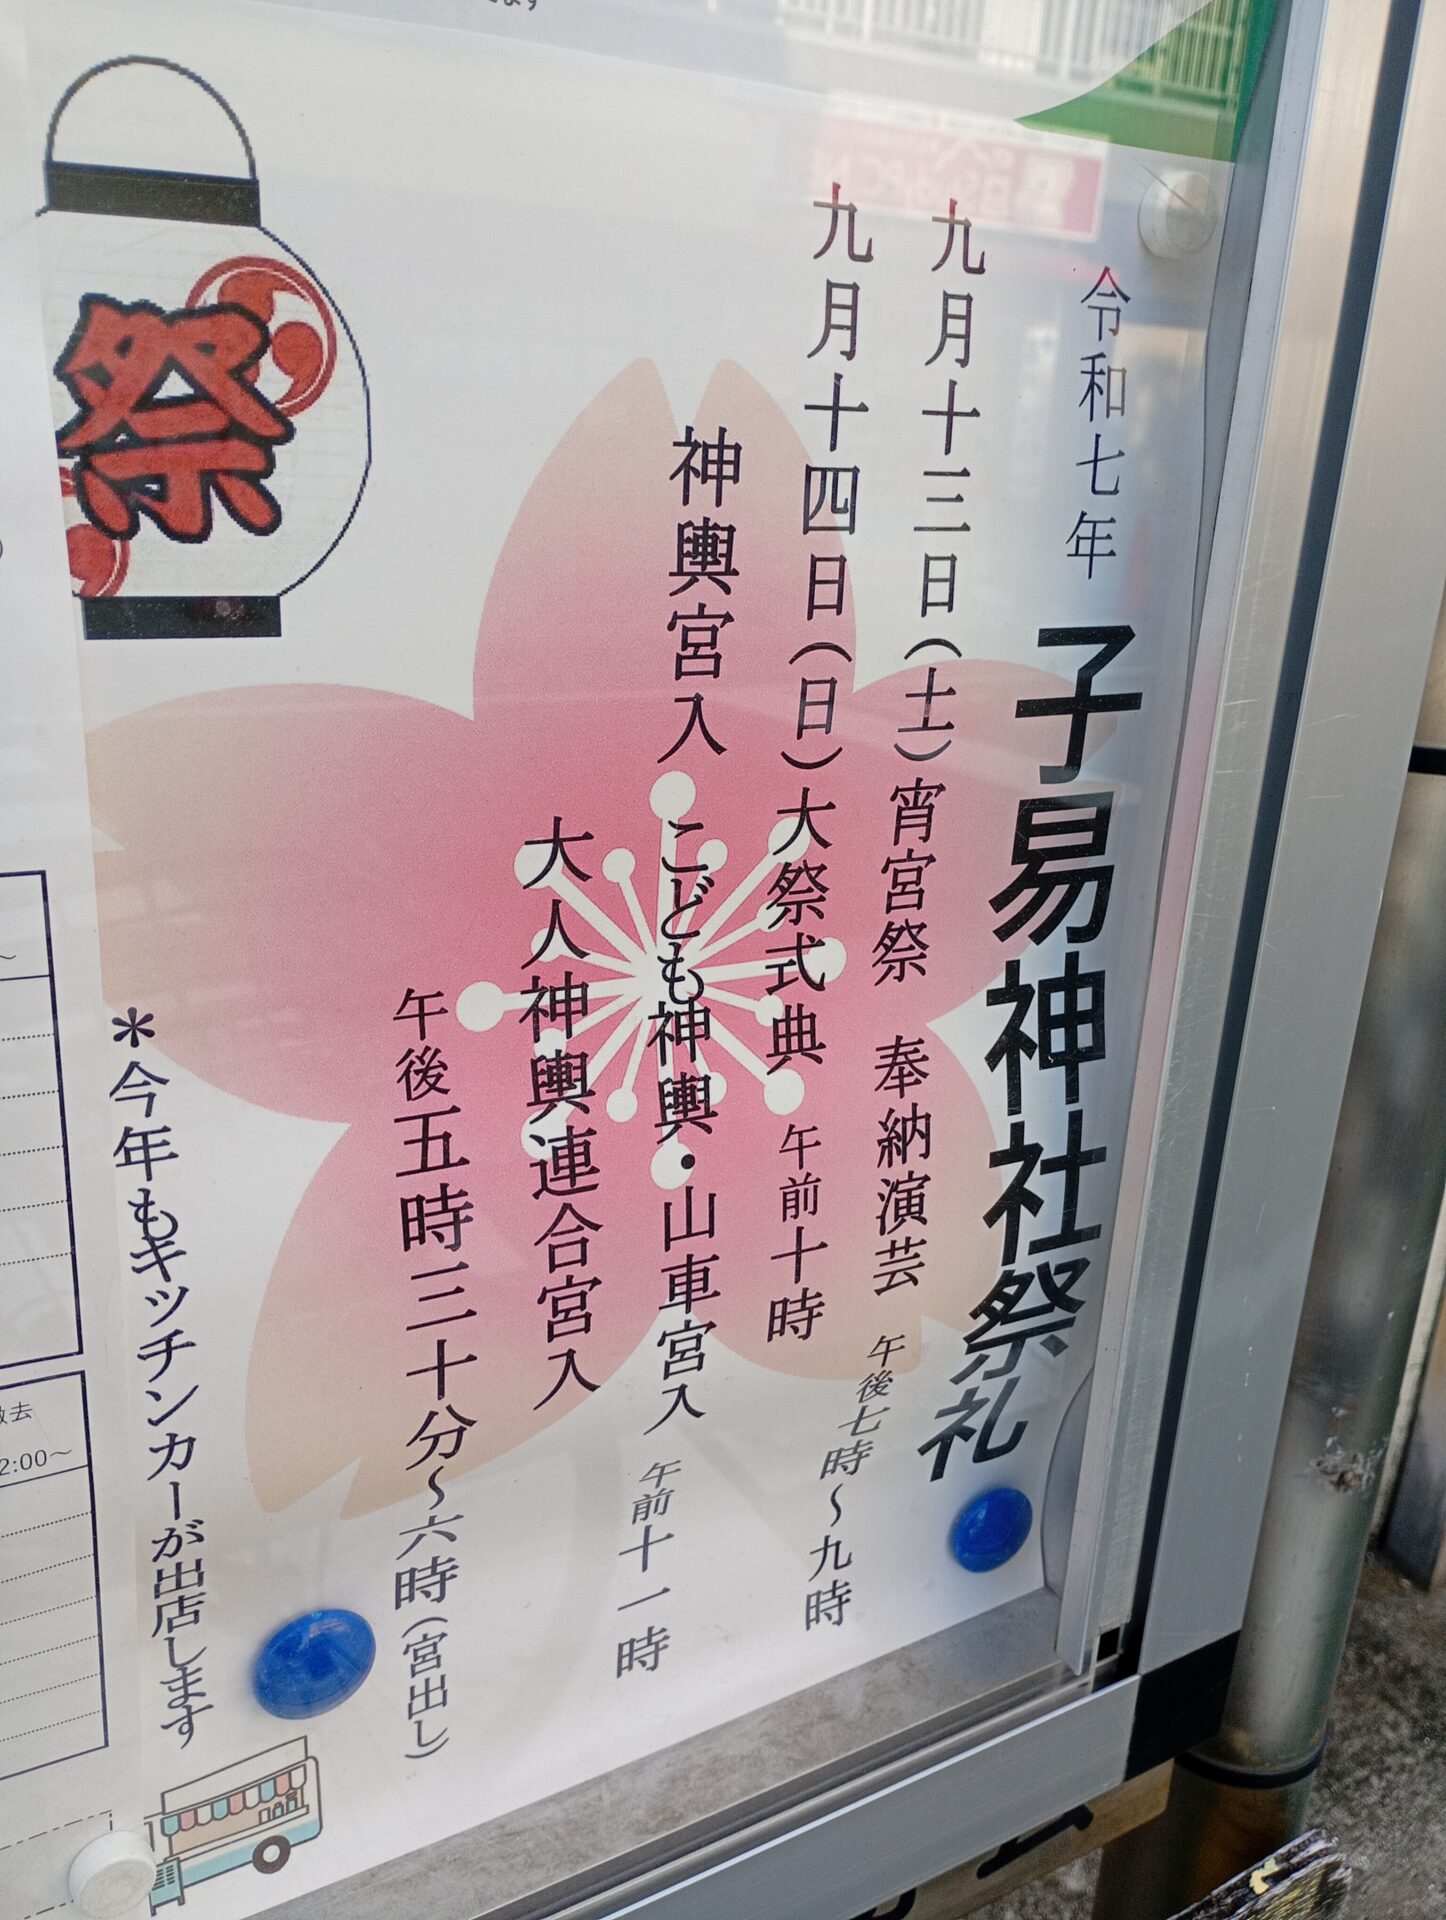 令和七年 子易神社祭礼
九月十三日(土)宵宮祭 奉納演芸 午後七時〜九時
九月十四日(日)大祭式典 午前十時
神輿宮入 こども神輿・山車宮入 午前十一時
大人神輿連合宮入
午後五時三十分〜六時(宮出し)
*今年もキッチンカーが出店します
祭
2:00〜